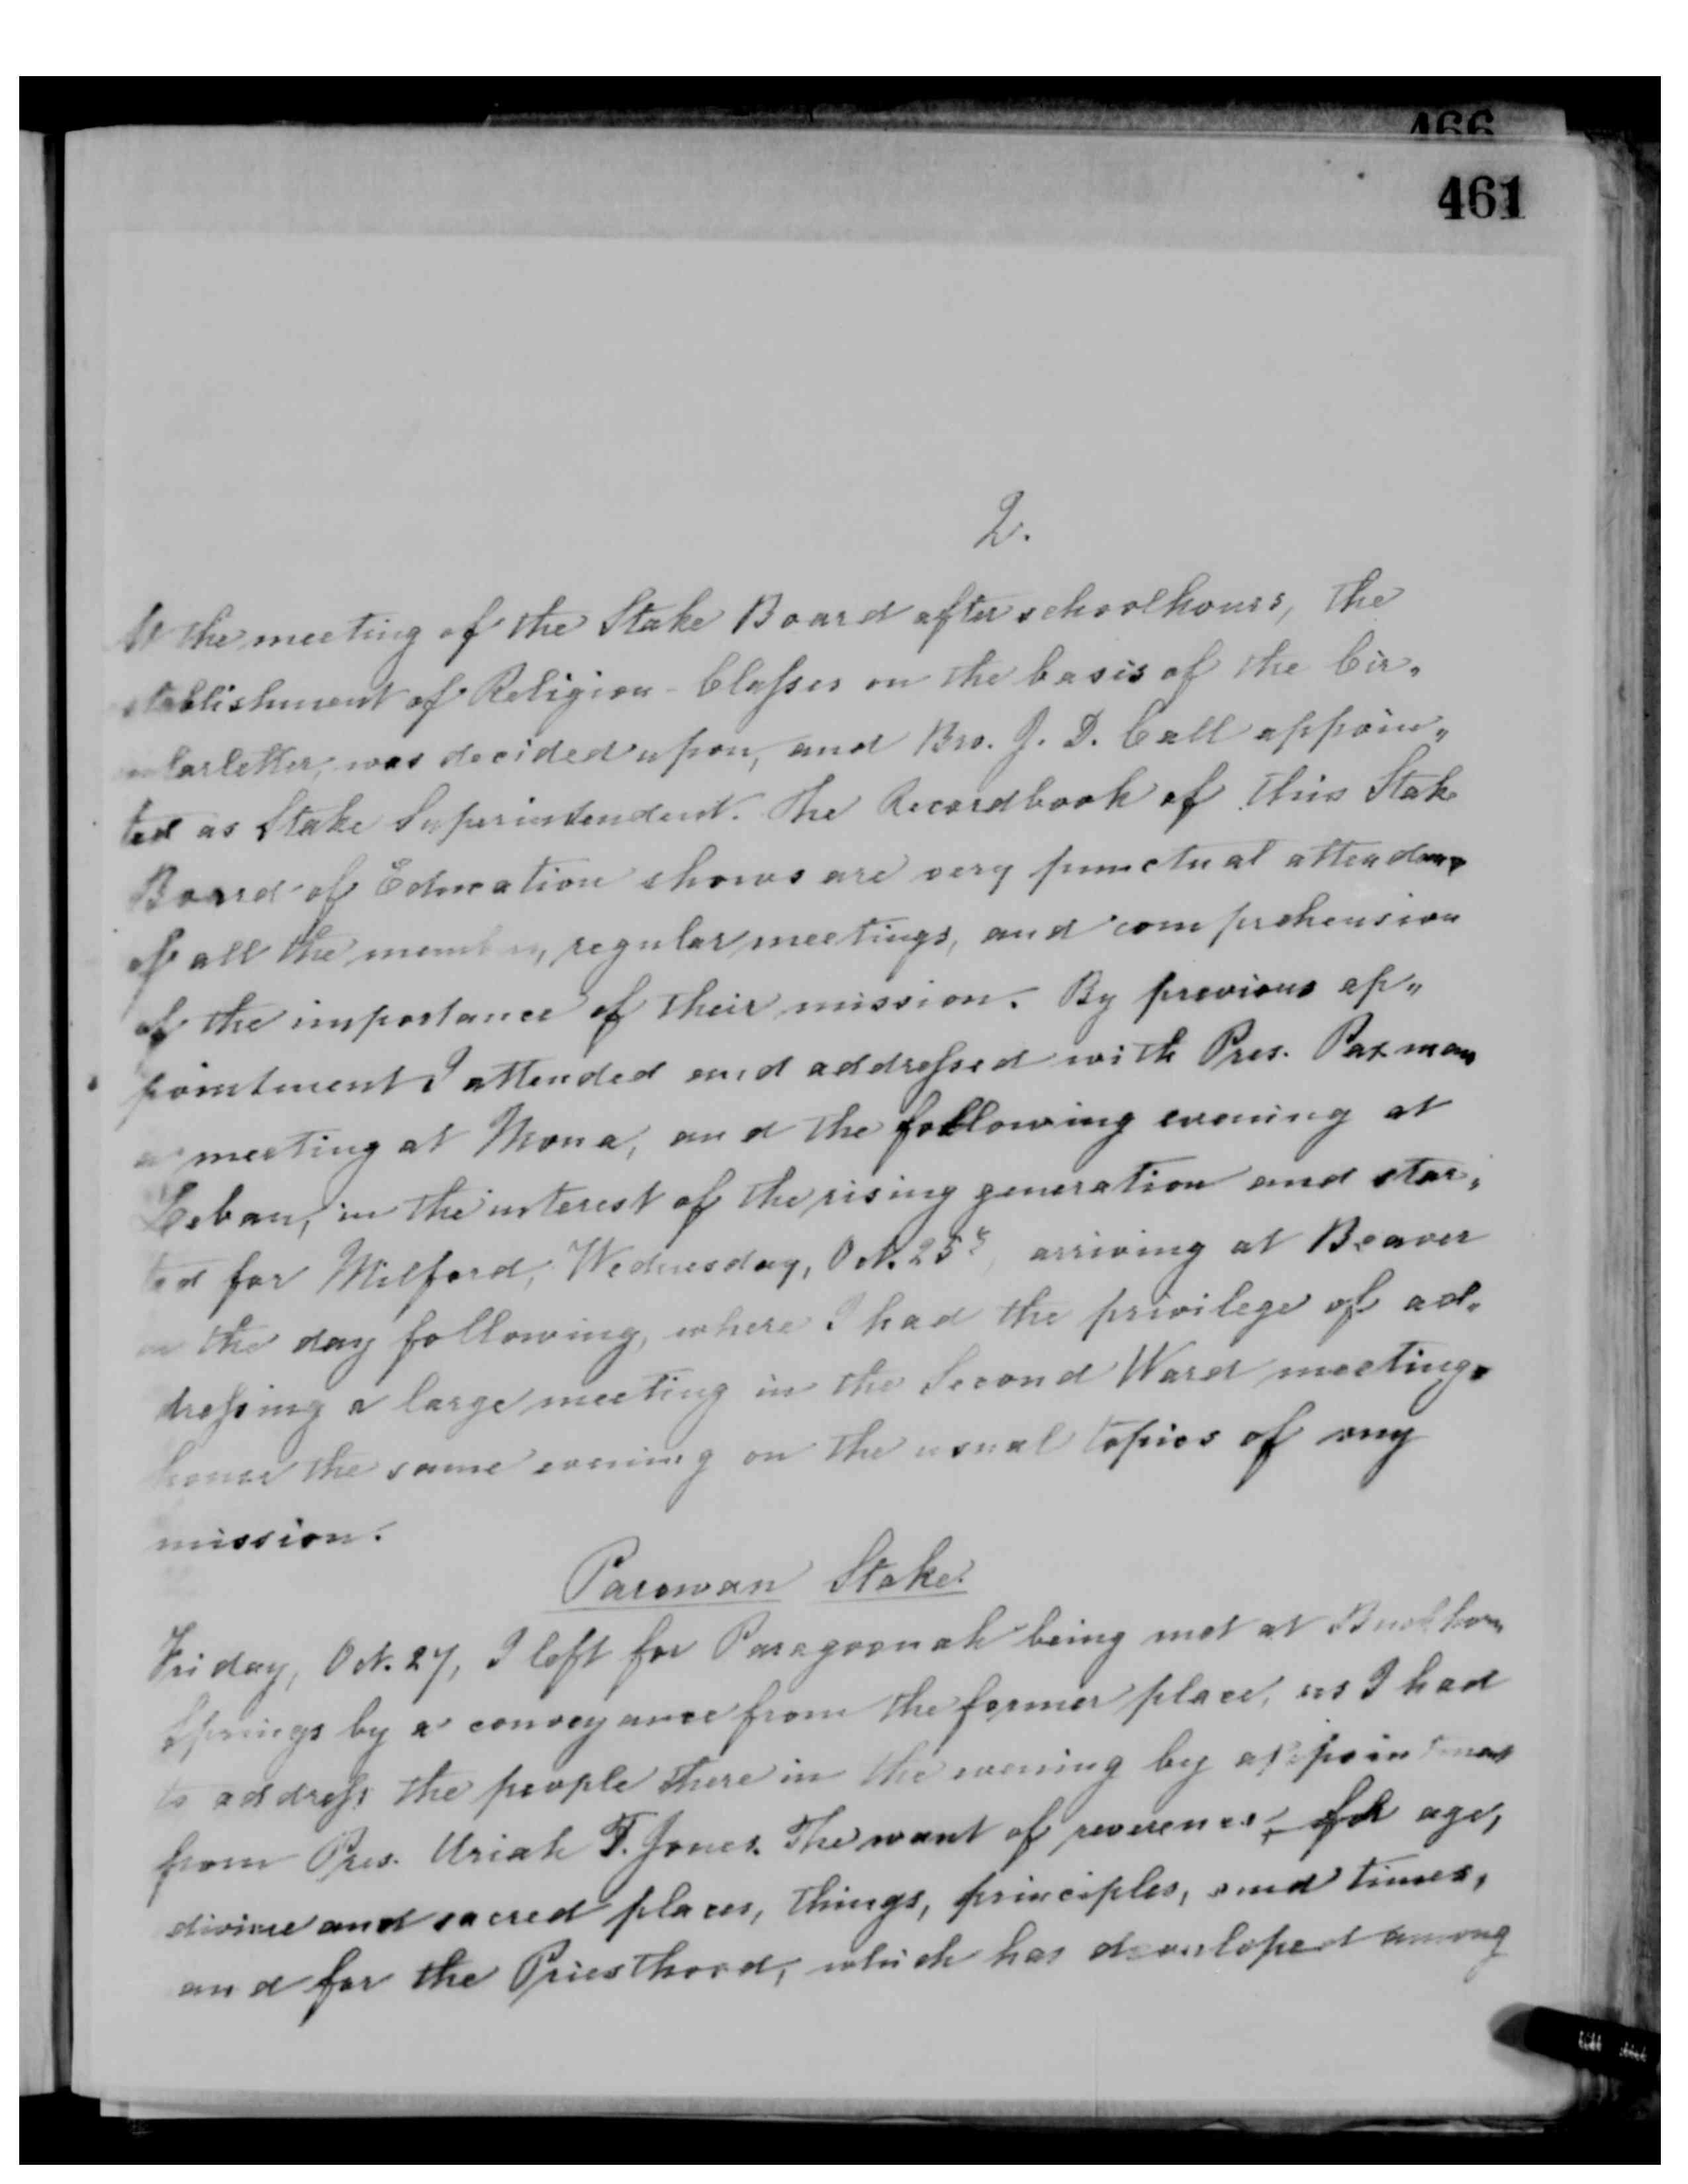 466
461
2.
At the meeting of the Stake Board after schoolhours, the
establishment of Religion-Classes on the basis of the Cir-
cularletter, was decided upon, and Bro. J. D. Call appoin-
ted as Stake Superintendent. The Recordbook of this Stake
Board of Education shows are very punctual attendance
of all the members, regular meetings, and comprehension
of the importance of their mission. By previous ap-
pointment I attended and addressed with Pres. Paxman
a meeting at Mona, and the following evening at
Leban, in the interest of the rising generation and star-
ted for Milford, Wednesday, Oct. 25, arriving at Beaver
on the day following, where I had the privilege of ad-
dressing a large meeting in the Second Ward meeting-
house the same evening on the usual topics of my
mission.
Parowan Stake.
Friday, Oct. 27, I left for Paragoonah being met at Buckhorn
Springs by a conveyance from the former place, as I had
to address the people there in the evening by appointment
from Pres. Uriah T. Jones. The want of reverence, for age,
divine and sacred places, things, principles, and times,
and for the Priesthood, which has developed among